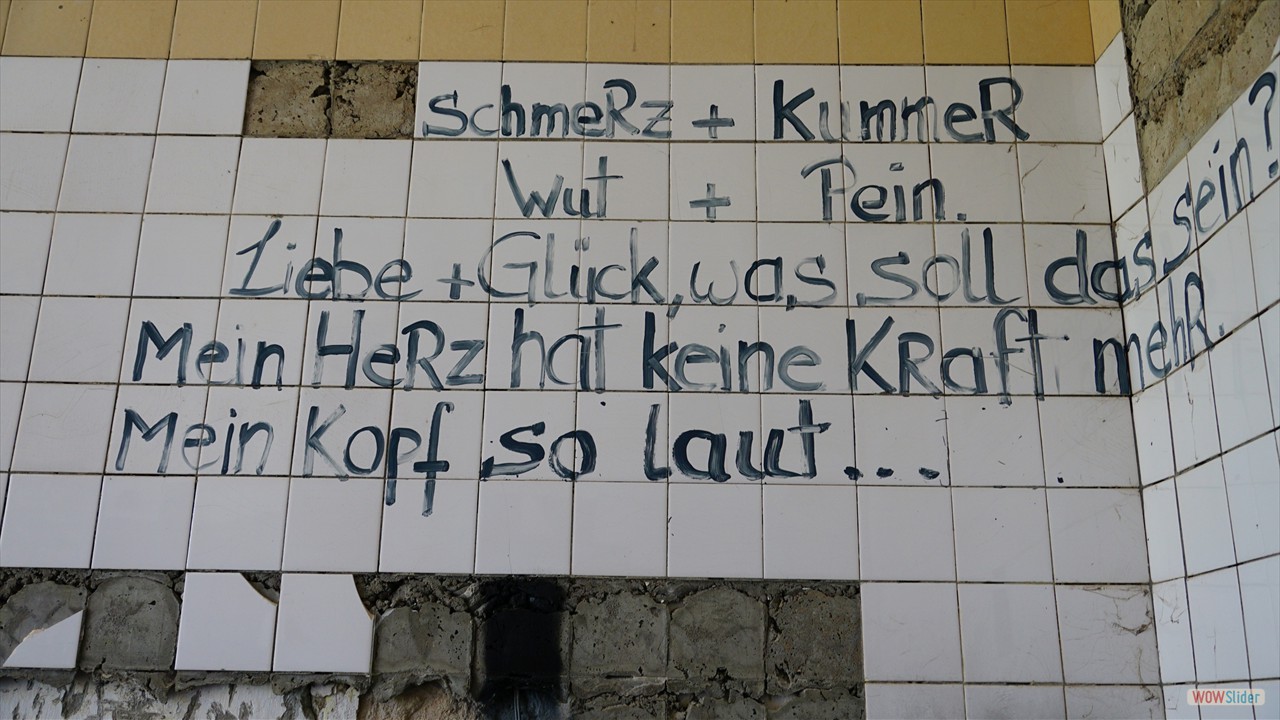 SchmeRz + KummeR
Wut + Pein.
Liebe + Glück, was soll das sein?
Mein HeRz hat keine KRaft mehR.
Mein Kopf so laut...
WOWSlider